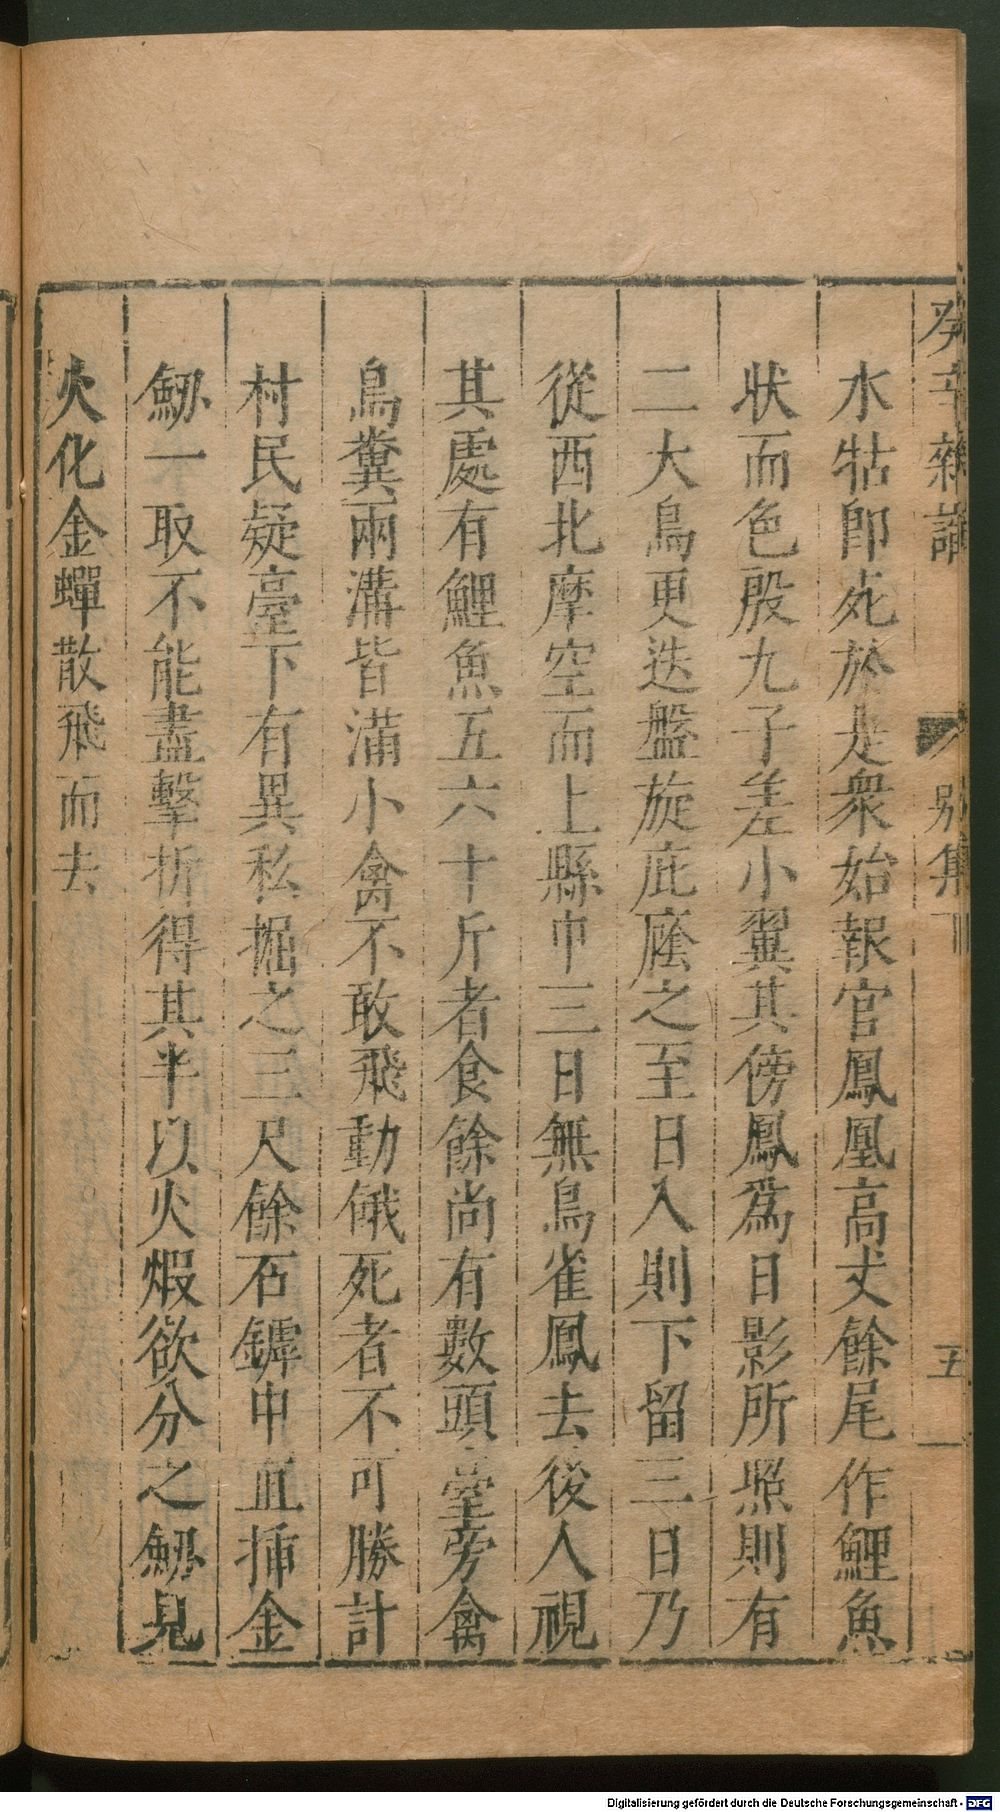 癸辛雜識 別集下 五一
水牯卽死於是衆始報官鳳凰高丈餘尾作鯉魚
狀而色殷九子差小翼其傍鳳爲日影所照則有
二大鳥更迭盤旋庇廕之至日入則下留三日乃
從西北摩空而上縣中三日無鳥雀鳳去後人視
其處有鯉魚五六十斤者食餘尚有數頭臺旁禽
鳥糞兩溝皆滿小禽不敢飛動餓死者不可勝計
村民疑臺下有異私掘之三尺餘石罅中直揷金
劒一取不能盡擊折得其半以火煅欲分之劒見
火化金蟬散飛而去
Digitalisierung gefördert durch die Deutsche Forschungsgemeinschaft - DFG